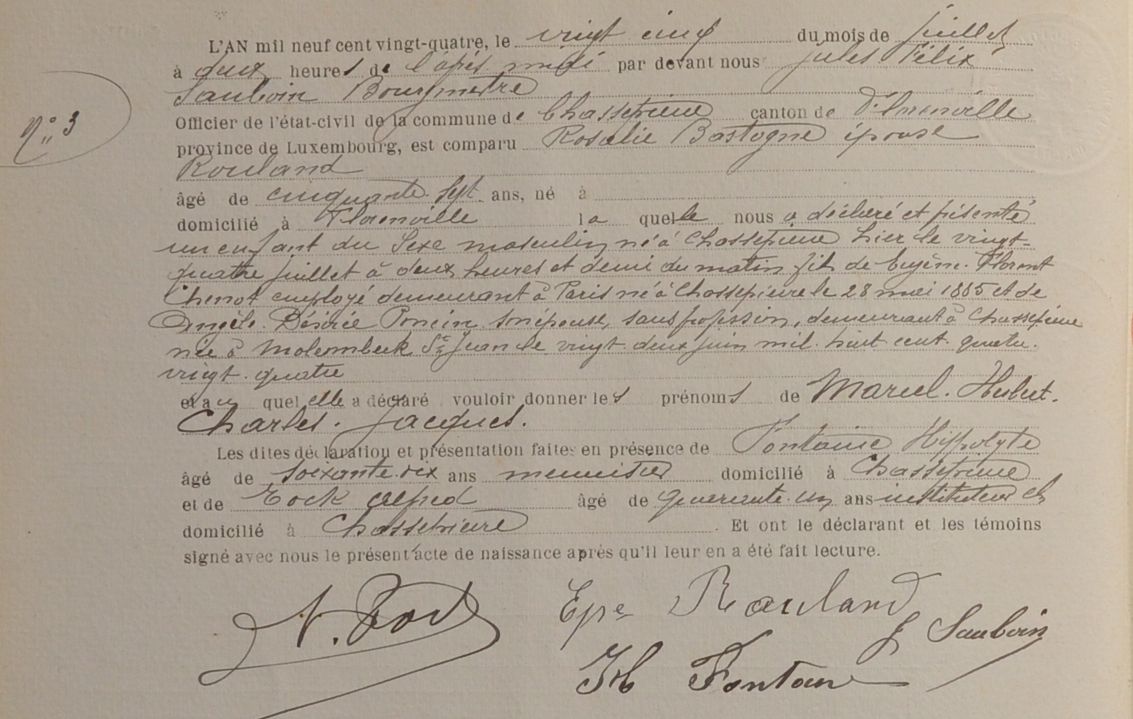 L'AN mil neuf cent vingt-quatre, le vingt cinq du mois de juillet
à deux heures de l'après midi par devant nous Jules Félix
Sauboin Bourgmestre
N° 3
Officier de l'état-civil de la commune de Chassepierre canton de Florenville
province de Luxembourg, est comparu Rosalie Bastogne épouse
Rouland
âgé de cinquante-sept ans, né à
domicilié à Florenville laquelle nous a déclaré et présenté
un enfant du sexe masculin né à Chassepierre hier le vingt-
quatre juillet à deux heures et demi du matin fils de Eugène-Florent
Chenot employé demeurant à Paris né à Chassepierre le 28 mai 1885 et de
Angèle-Désirée Poncin son épouse, sans profession, demeurant à Chassepierre
née à Molembeck St Jean le vingt deux juin mil huit cent quatre
vingt-quatre
et auquel elle a déclaré vouloir donner les prénoms de Marcel-Hubert-
Charles-Jacques.
Les dites déclaration et présentation faites en présence de Fontaine Hippolyte
âgé de soixante-dix ans menuisier domicilié à Chassepierre
et de Tock Alfred âgé de quarante-un ans instituteur et
domicilié à Chassepierre. Et ont le déclarant et les témoins
signé avec nous le présent acte de naissance après qu'il leur en a été fait lecture.
A. Tock Epse Rouland
J Sauboin
H Fontaine